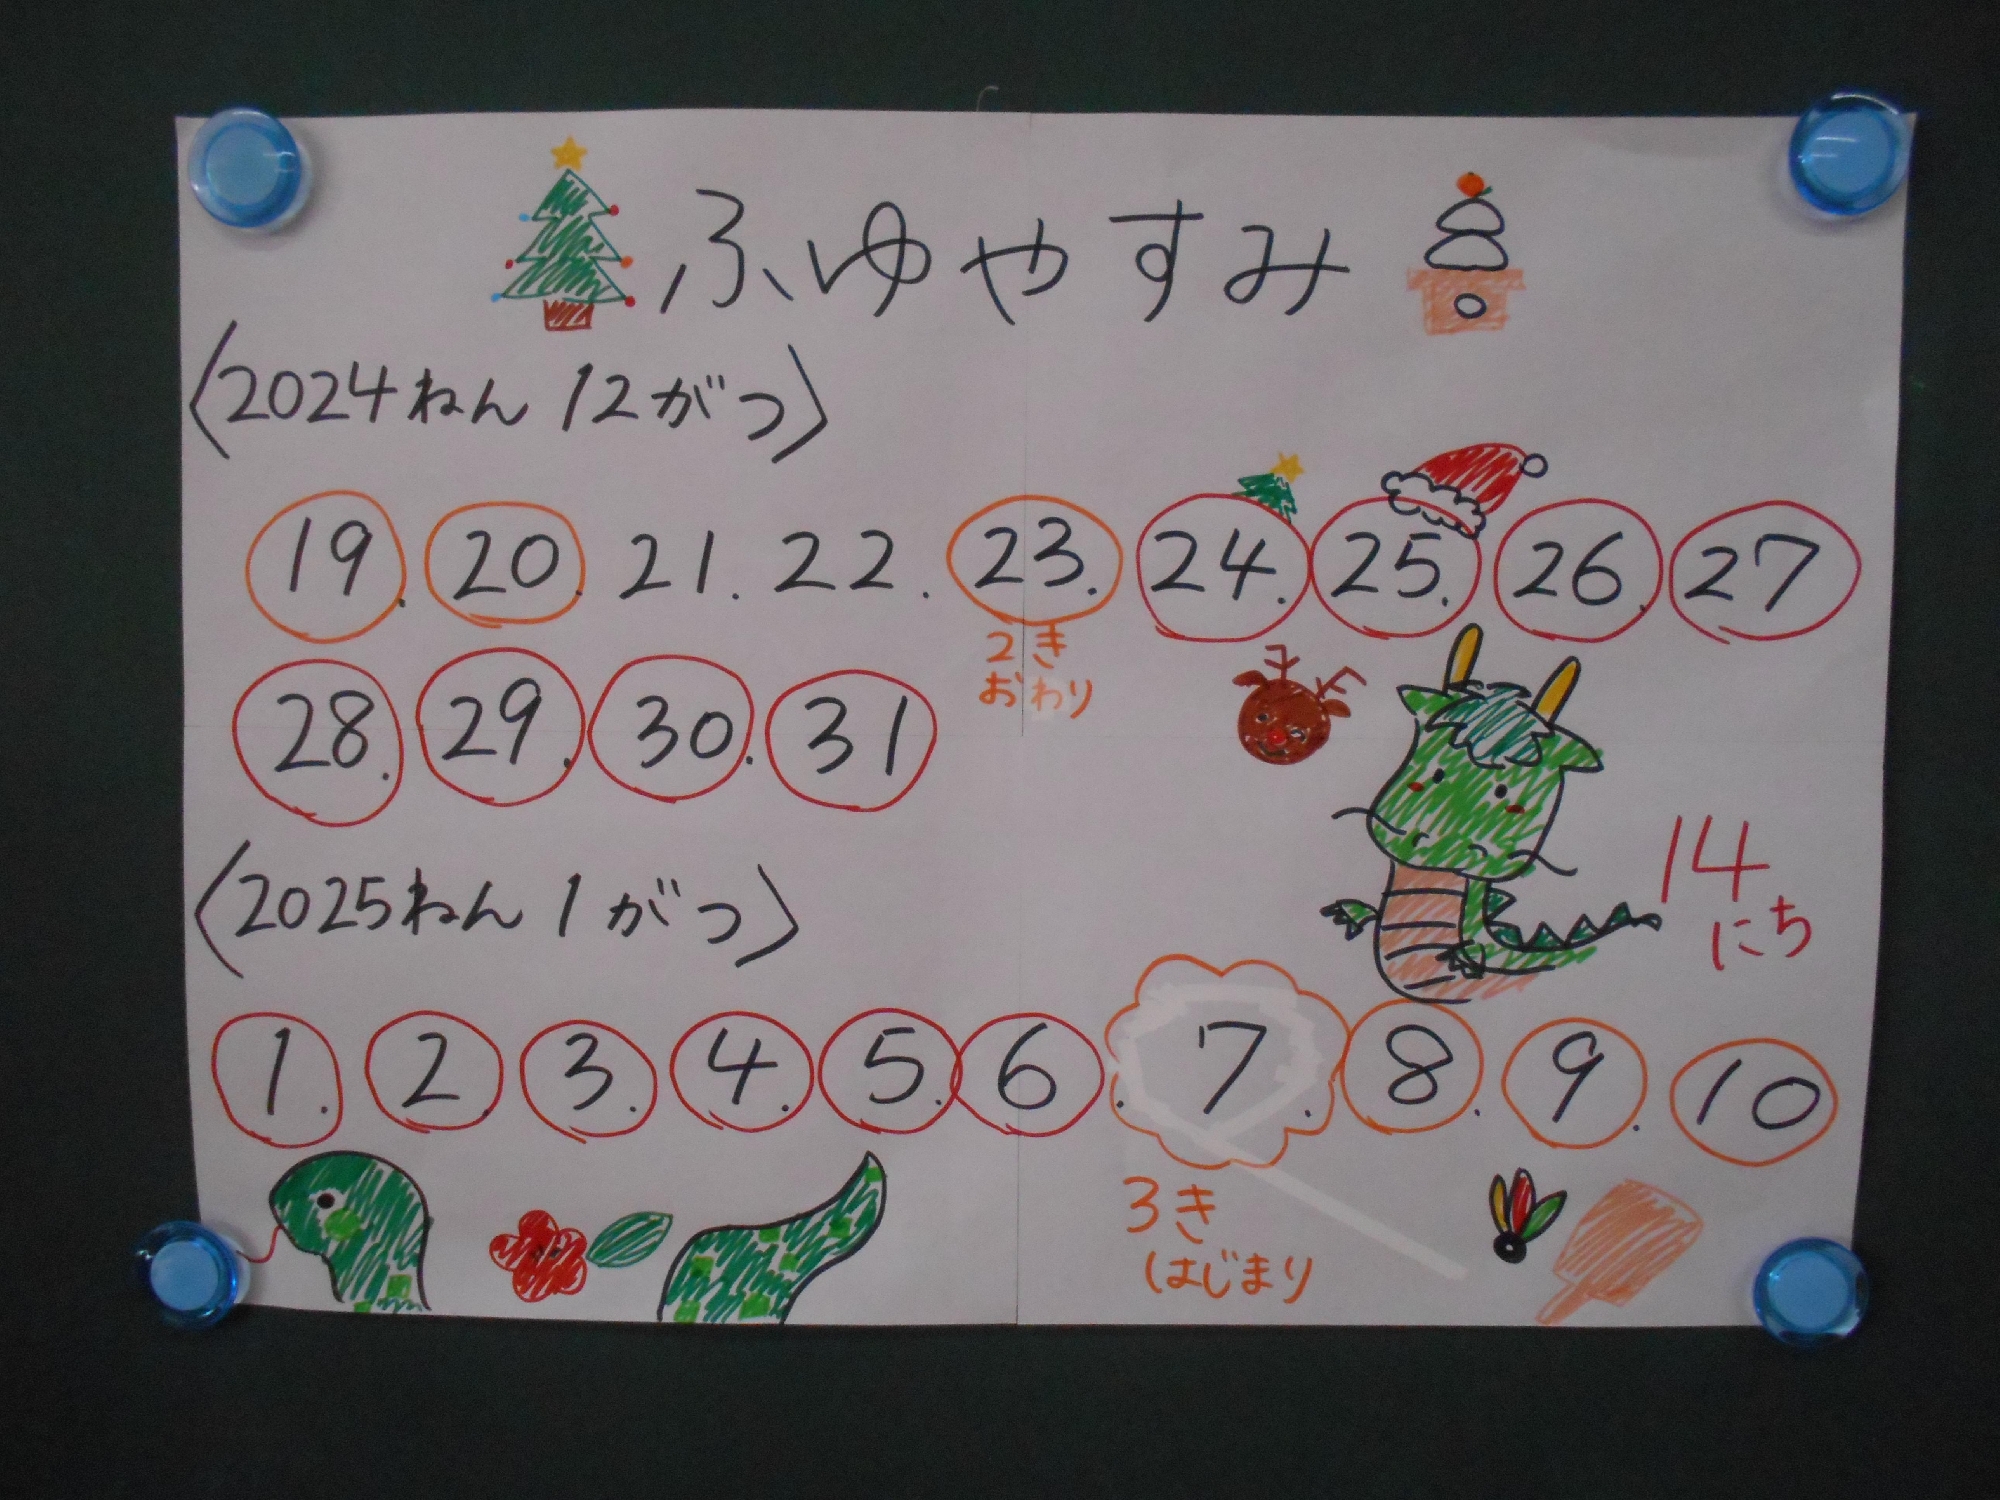 ふゆやすみ
〈2024ねん 12がつ〉
19. 20. 21. 22. 23. 24. 25. 26. 27
2き
おわり
28. 29. 30. 31
14
にち
〈2025ねん 1がつ〉
1. 2. 3. 4. 5. 6. 7. 8. 9. 10
3き
はじまり